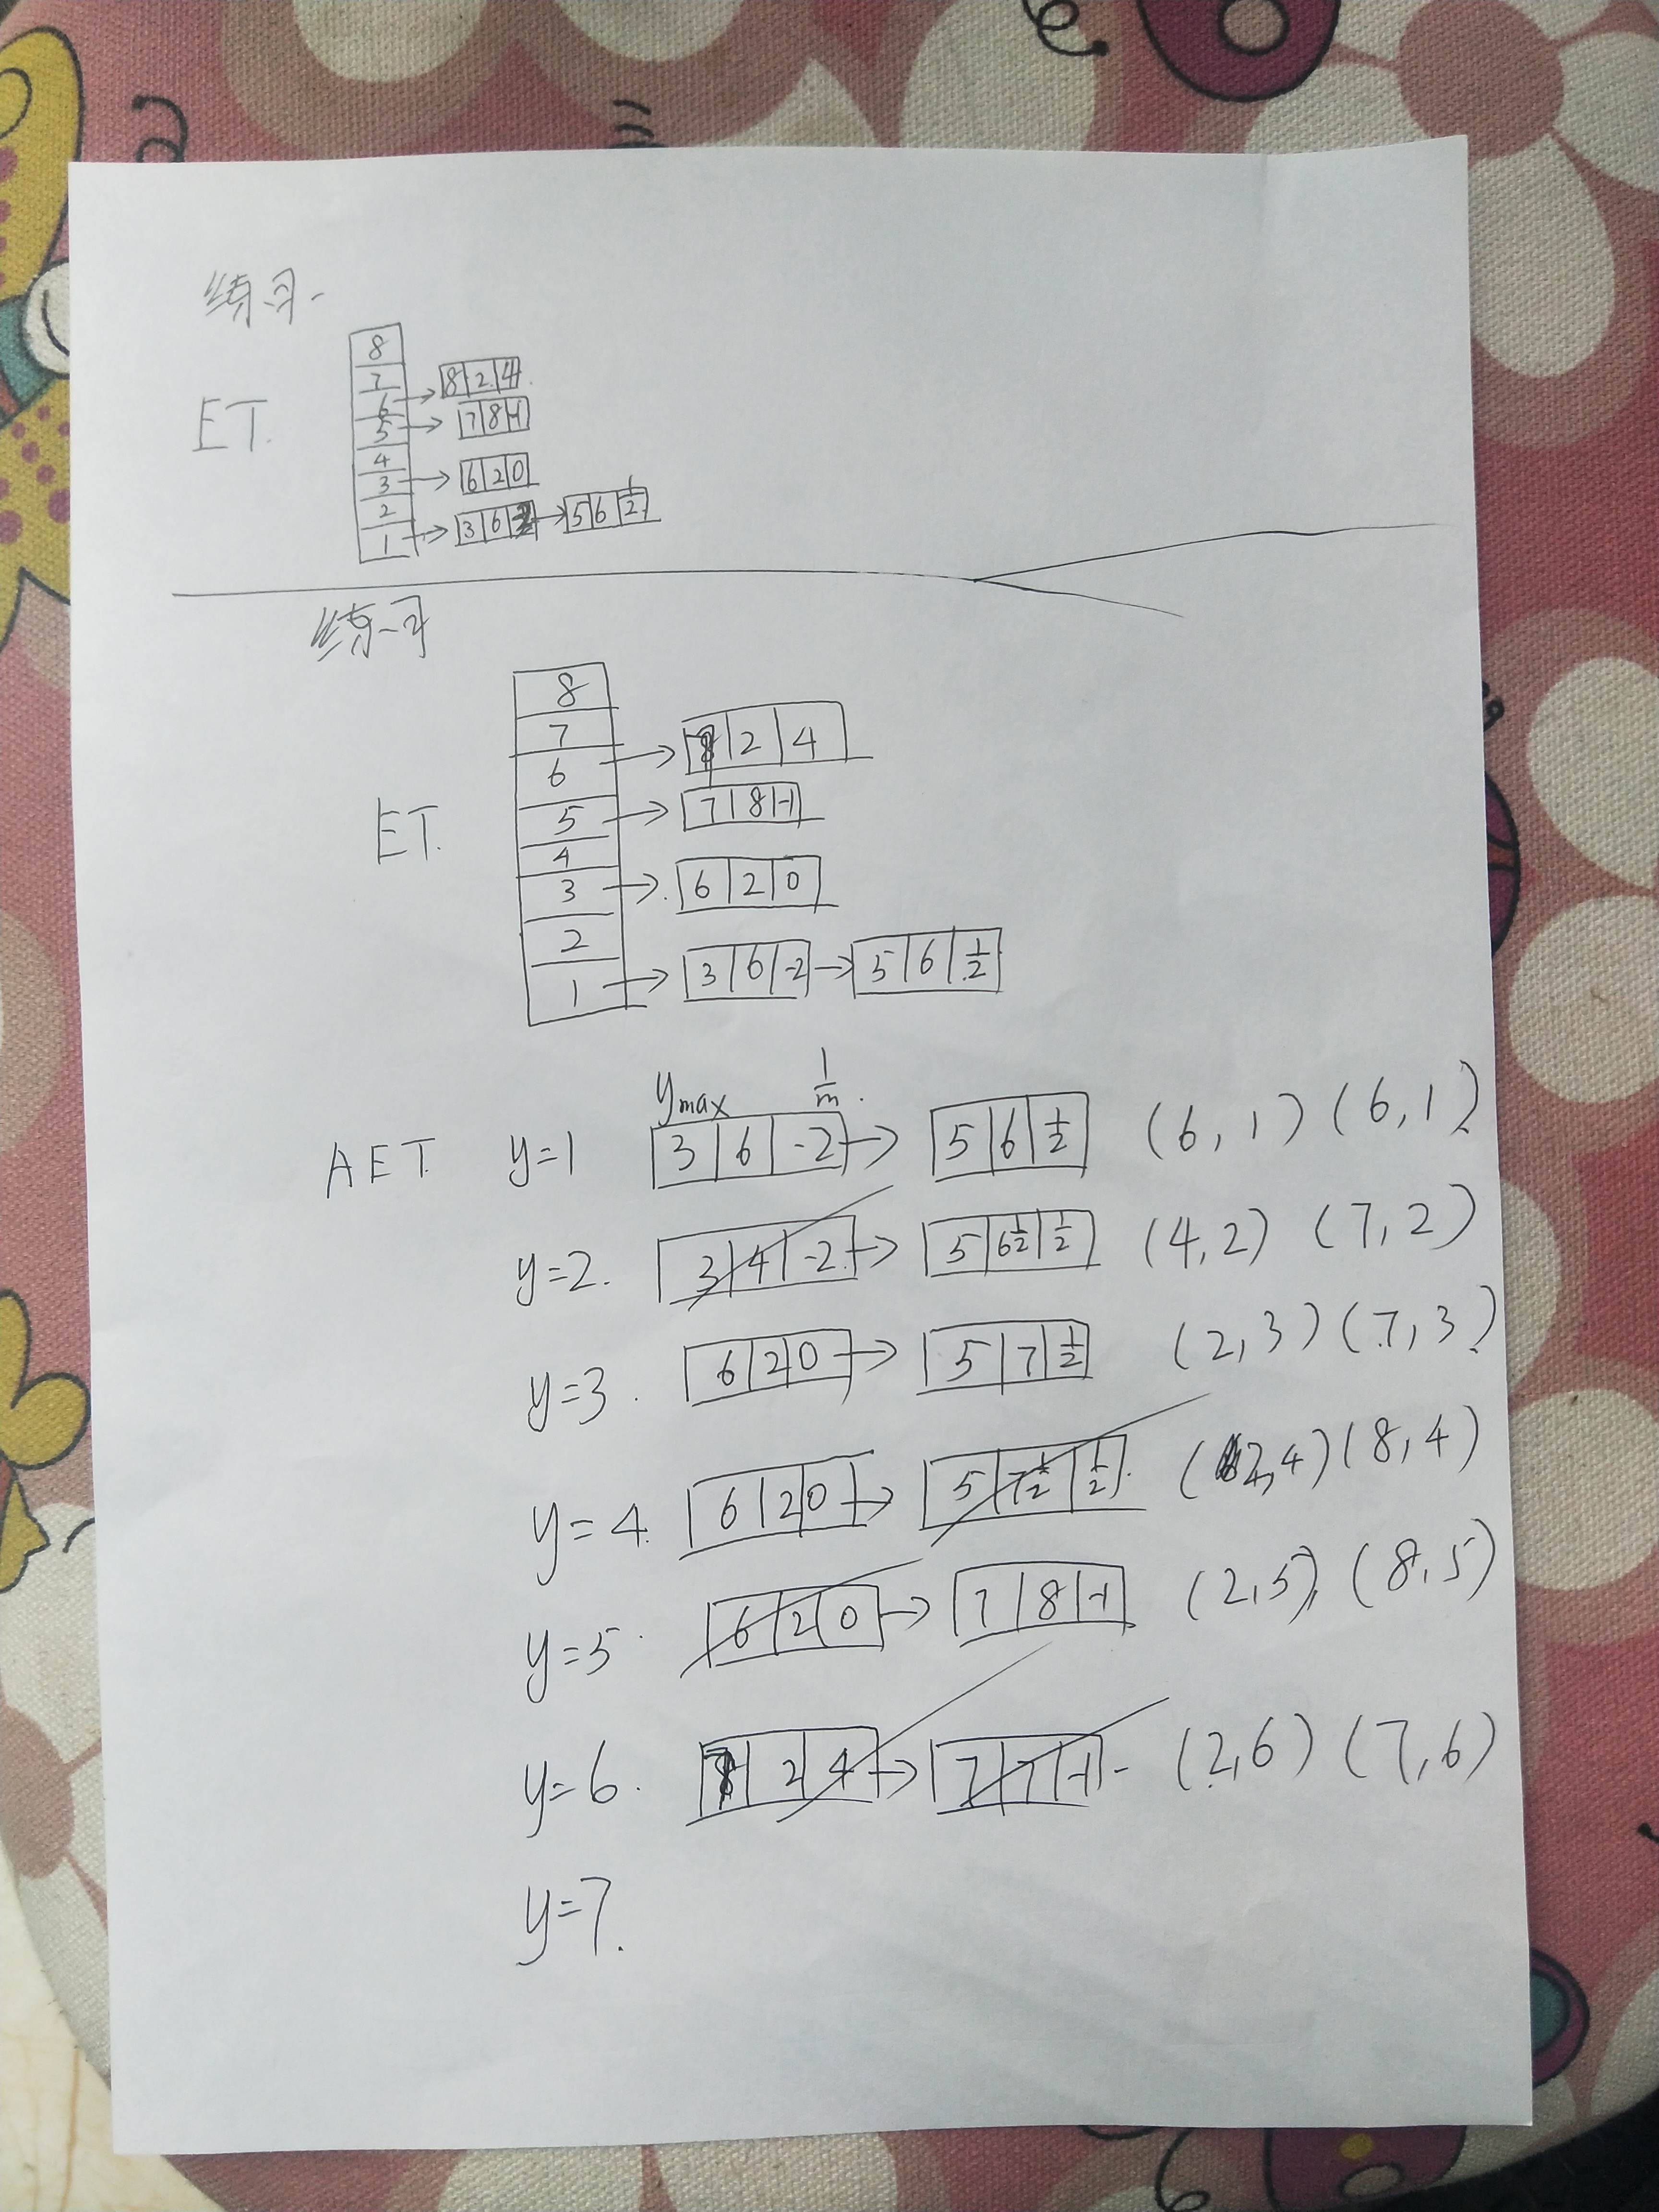 练习一
ET.
8
7
6 → 8 2 4
5 → 7 8 -1
4
3 → 6 2 0
2
1 → 3 6 → 5 6 1/2
练习
ET.
8
7
6 → 2 4
5 → 7 8 -1
4
3 → 6 2 0
2
1 → 3 6 -2 → 5 6 1/2
ymax 1/m
AET y=1 3 6 -2 → 5 6 1/2 (6,1) (6,1)
y=2. 3 4 -2 → 5 6 1/2 1/2 (4,2) (7,2)
y=3. 6 2 0 → 5 7 1/2 (2,3) (7,3)
y=4. 6 2 0 → 5 7 1/2 1/2 (2,4) (8,4)
y=5. 6 2 0 → 7 8 -1 (2,5), (8,5)
y=6. 2 4 → 7 7 -1 (2,6) (7,6)
y=7.